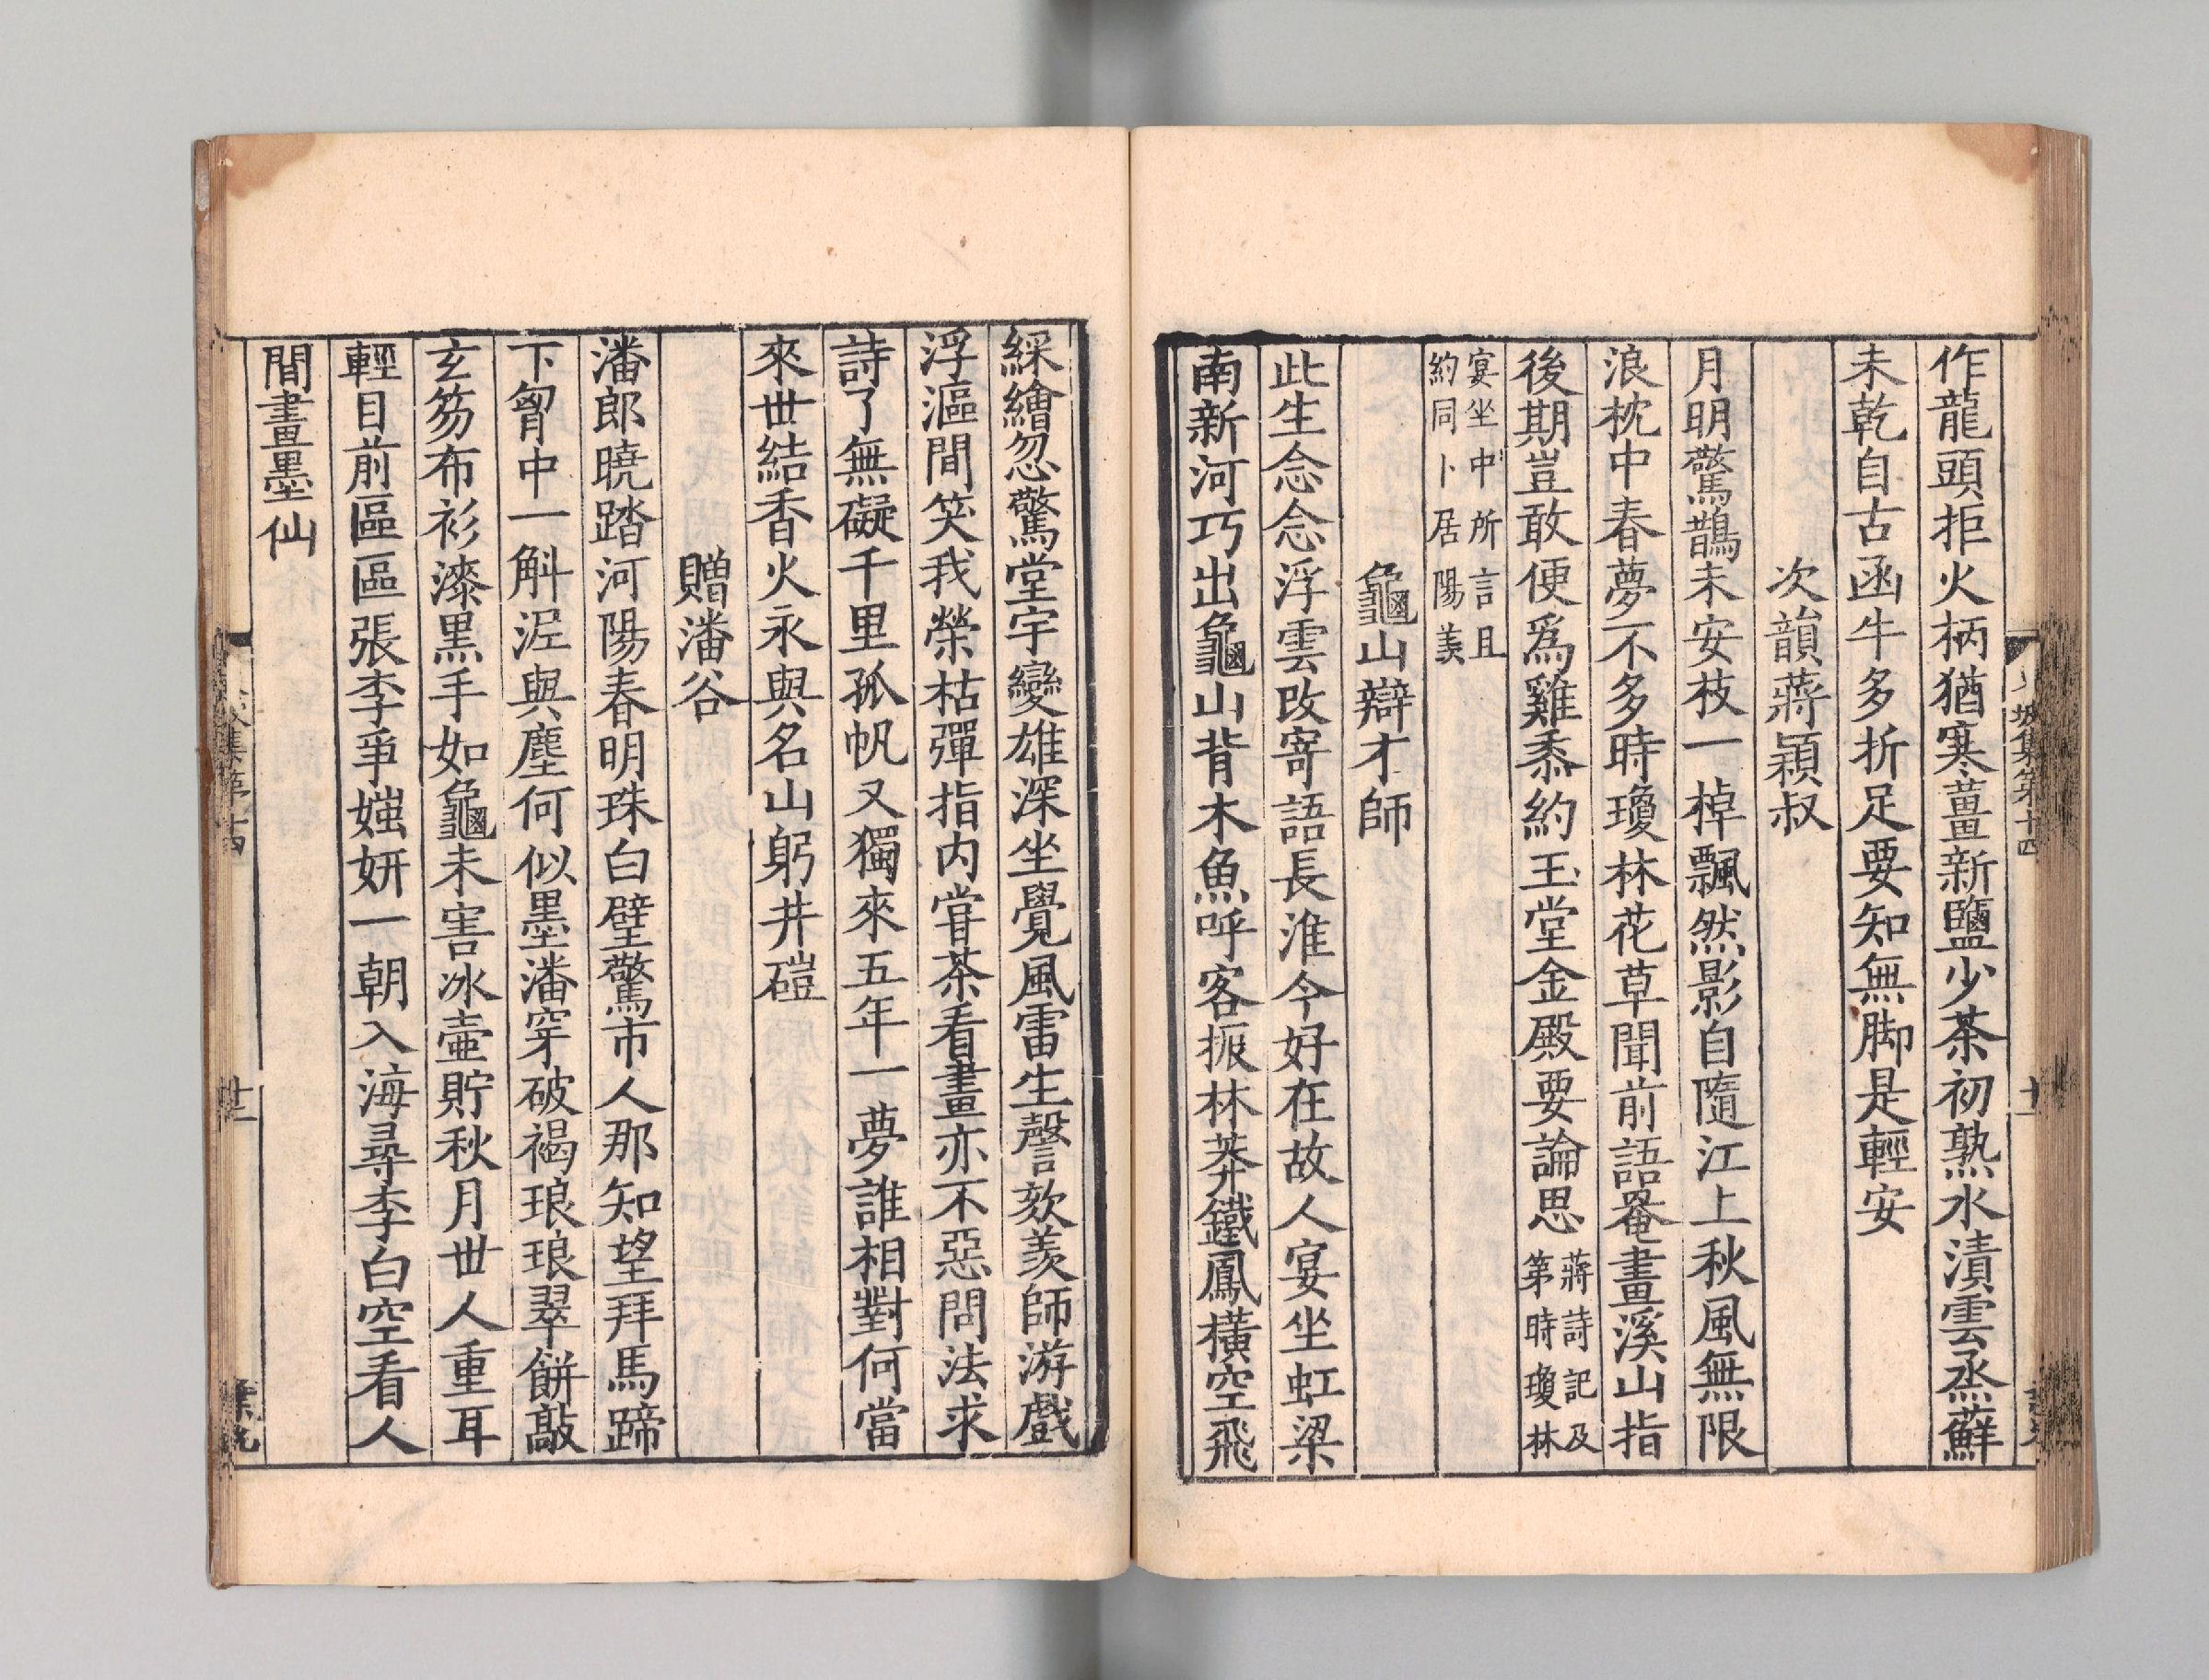 作龍頭拒火柄猶寒薑新鹽少茶初熟水漬雲蒸蘚
未乾自古函牛多折足要知無脚是輕安
次韻蔣穎叔
月明驚鵲未安枝一棹飄然影自隨江上秋風無限
浪枕中春夢不多時瓊林花草聞前語罨畫溪山指
後期豈敢便爲雞黍約玉堂金殿要論思蔣詩記及第時瓊林
宴坐中所言且約同卜居陽羨
龜山辯才師
此生念念浮雲改寄語長淮今好在故人宴坐虹梁
南新河巧出龜山背木魚呼客振林莽鐵鳳橫空飛
綵繪忽驚堂宇變雄深坐覺風雷生謦欬羨師游戲
浮漚間笑我榮枯彈指内甞茶看畫亦不惡問法求
詩了無礙千里孤帆又獨來五年一夢誰相對何當
來丗結香火永與名山躬井磑
贈潘谷
潘郎曉踏河陽春明珠白璧驚市人那知望拜馬蹄
下胷中一斛泥與塵何似墨潘穿破褐琅琅翠餅敲
玄笏布衫漆黑手如龜未害冰壺貯秋月丗人重耳
輕目前區區張李爭媸妍一朝入海尋李白空看人
間畫墨仙